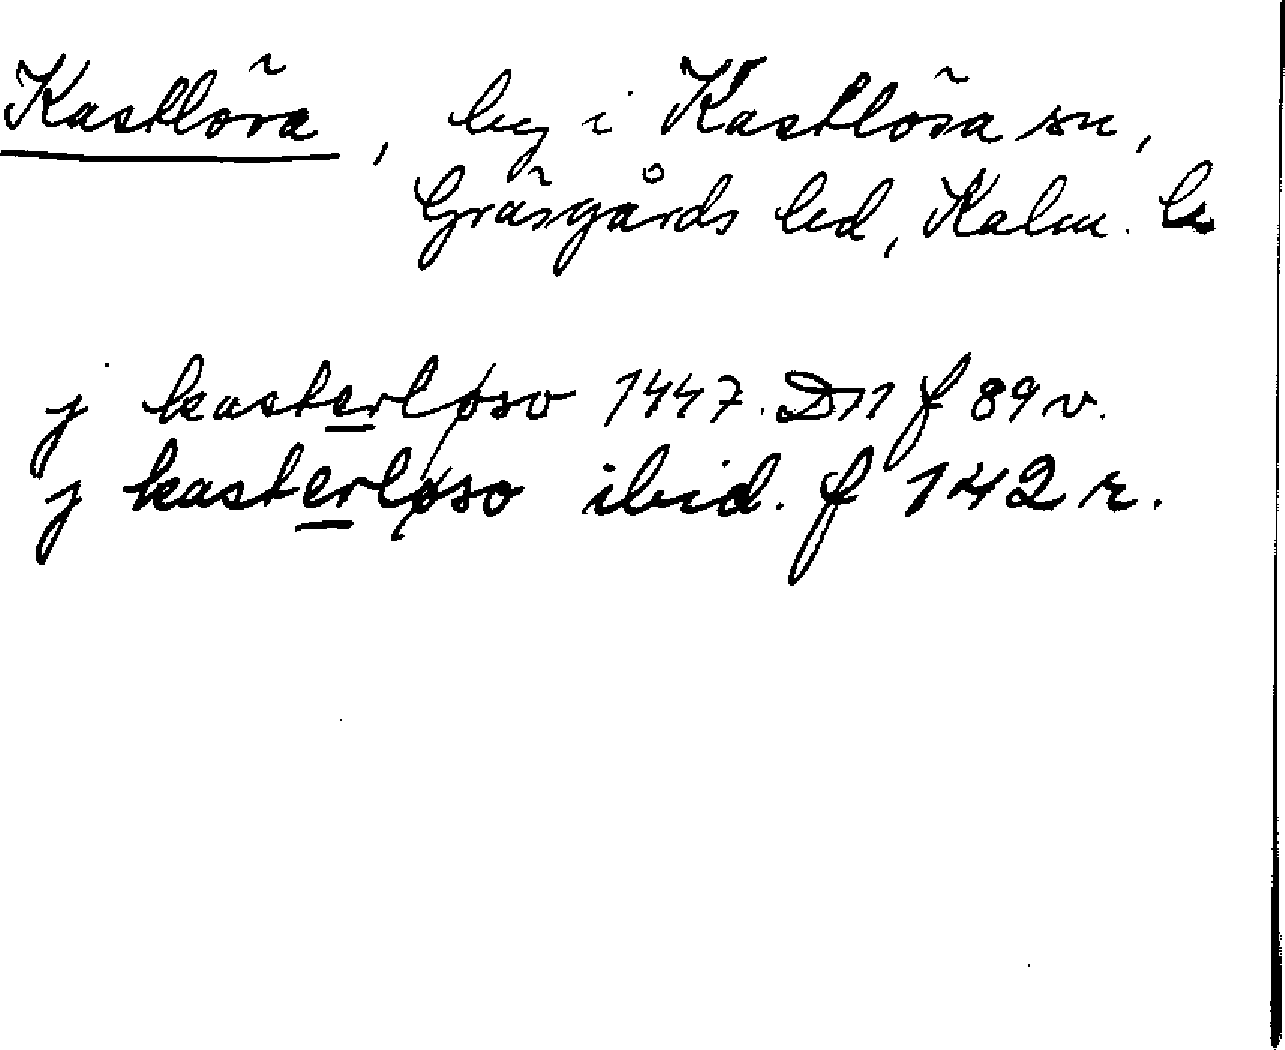 Kastlösa, by i Kastlösa sn,
Gräsgårds hd, Kalm. l.
j kasterløso 1447. Dn f 89 v.
j kasterløso ibid. f 142 r.